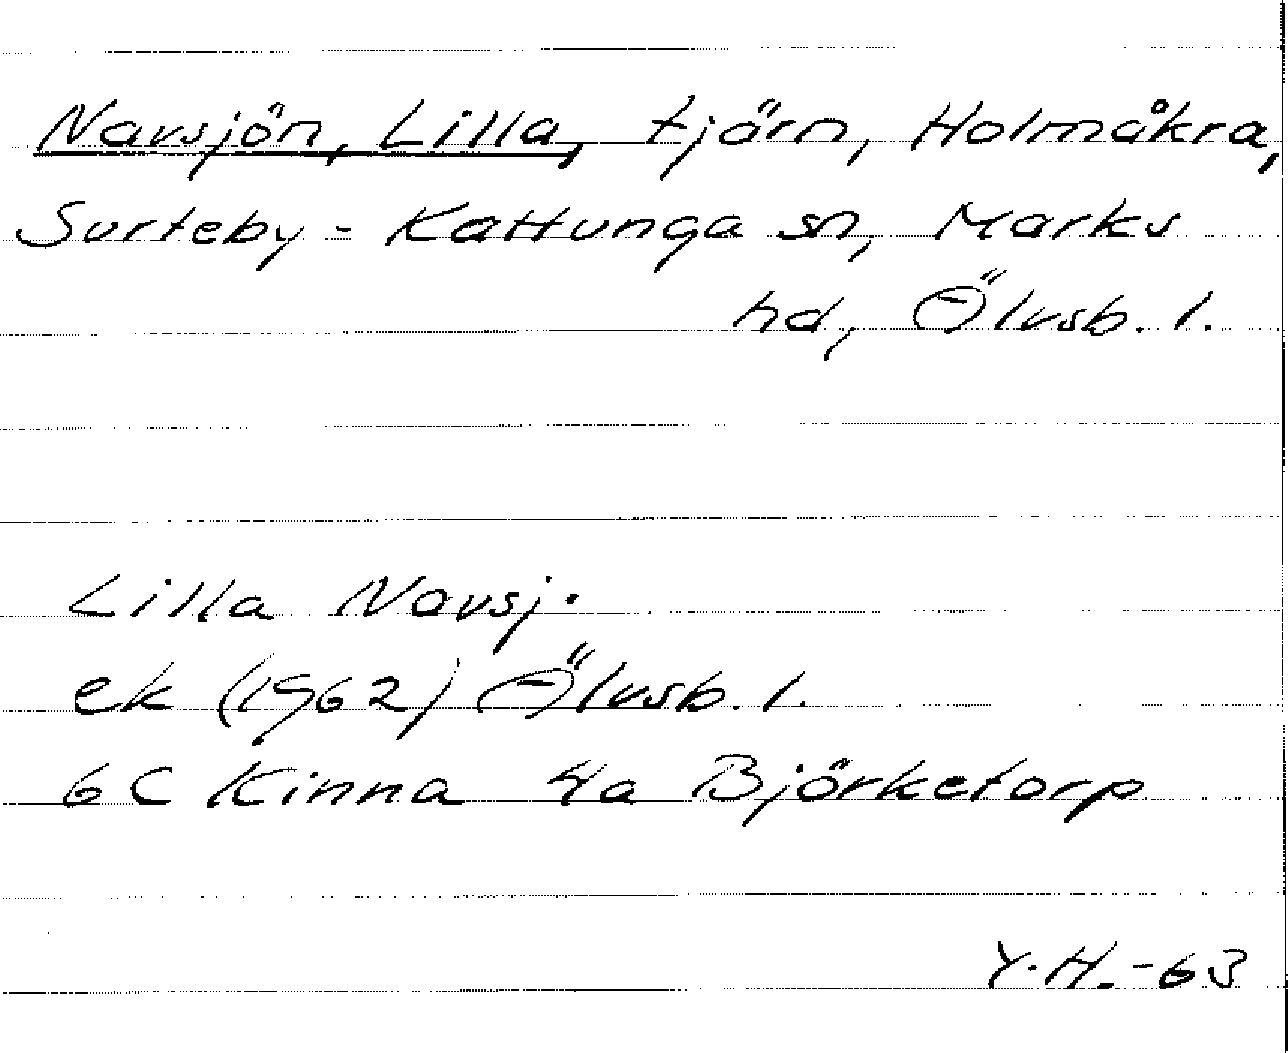 Navsjön, Lilla, tjärn, Holmåkra,
Surteby-Kattunga sn, Marks
hd, Älvsb. l.
Lilla Navsj.
ek (1962) Älvsb. l.
6C Kinna 4a Björketorp
Y.H.-63